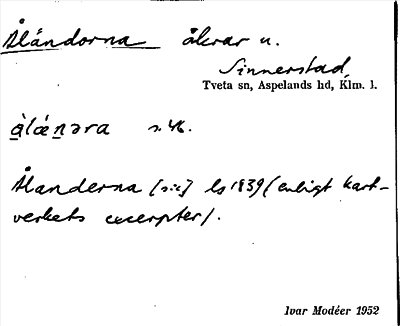 Ålándorna åkrar u.
Sinnerstad,
Tveta sn, Aspelands hd, Klm. l.
s. 46.
Ålanderna [sic] ls 1839 (enligt kart-
verkets excerpter).
Ivar Modéer 1952